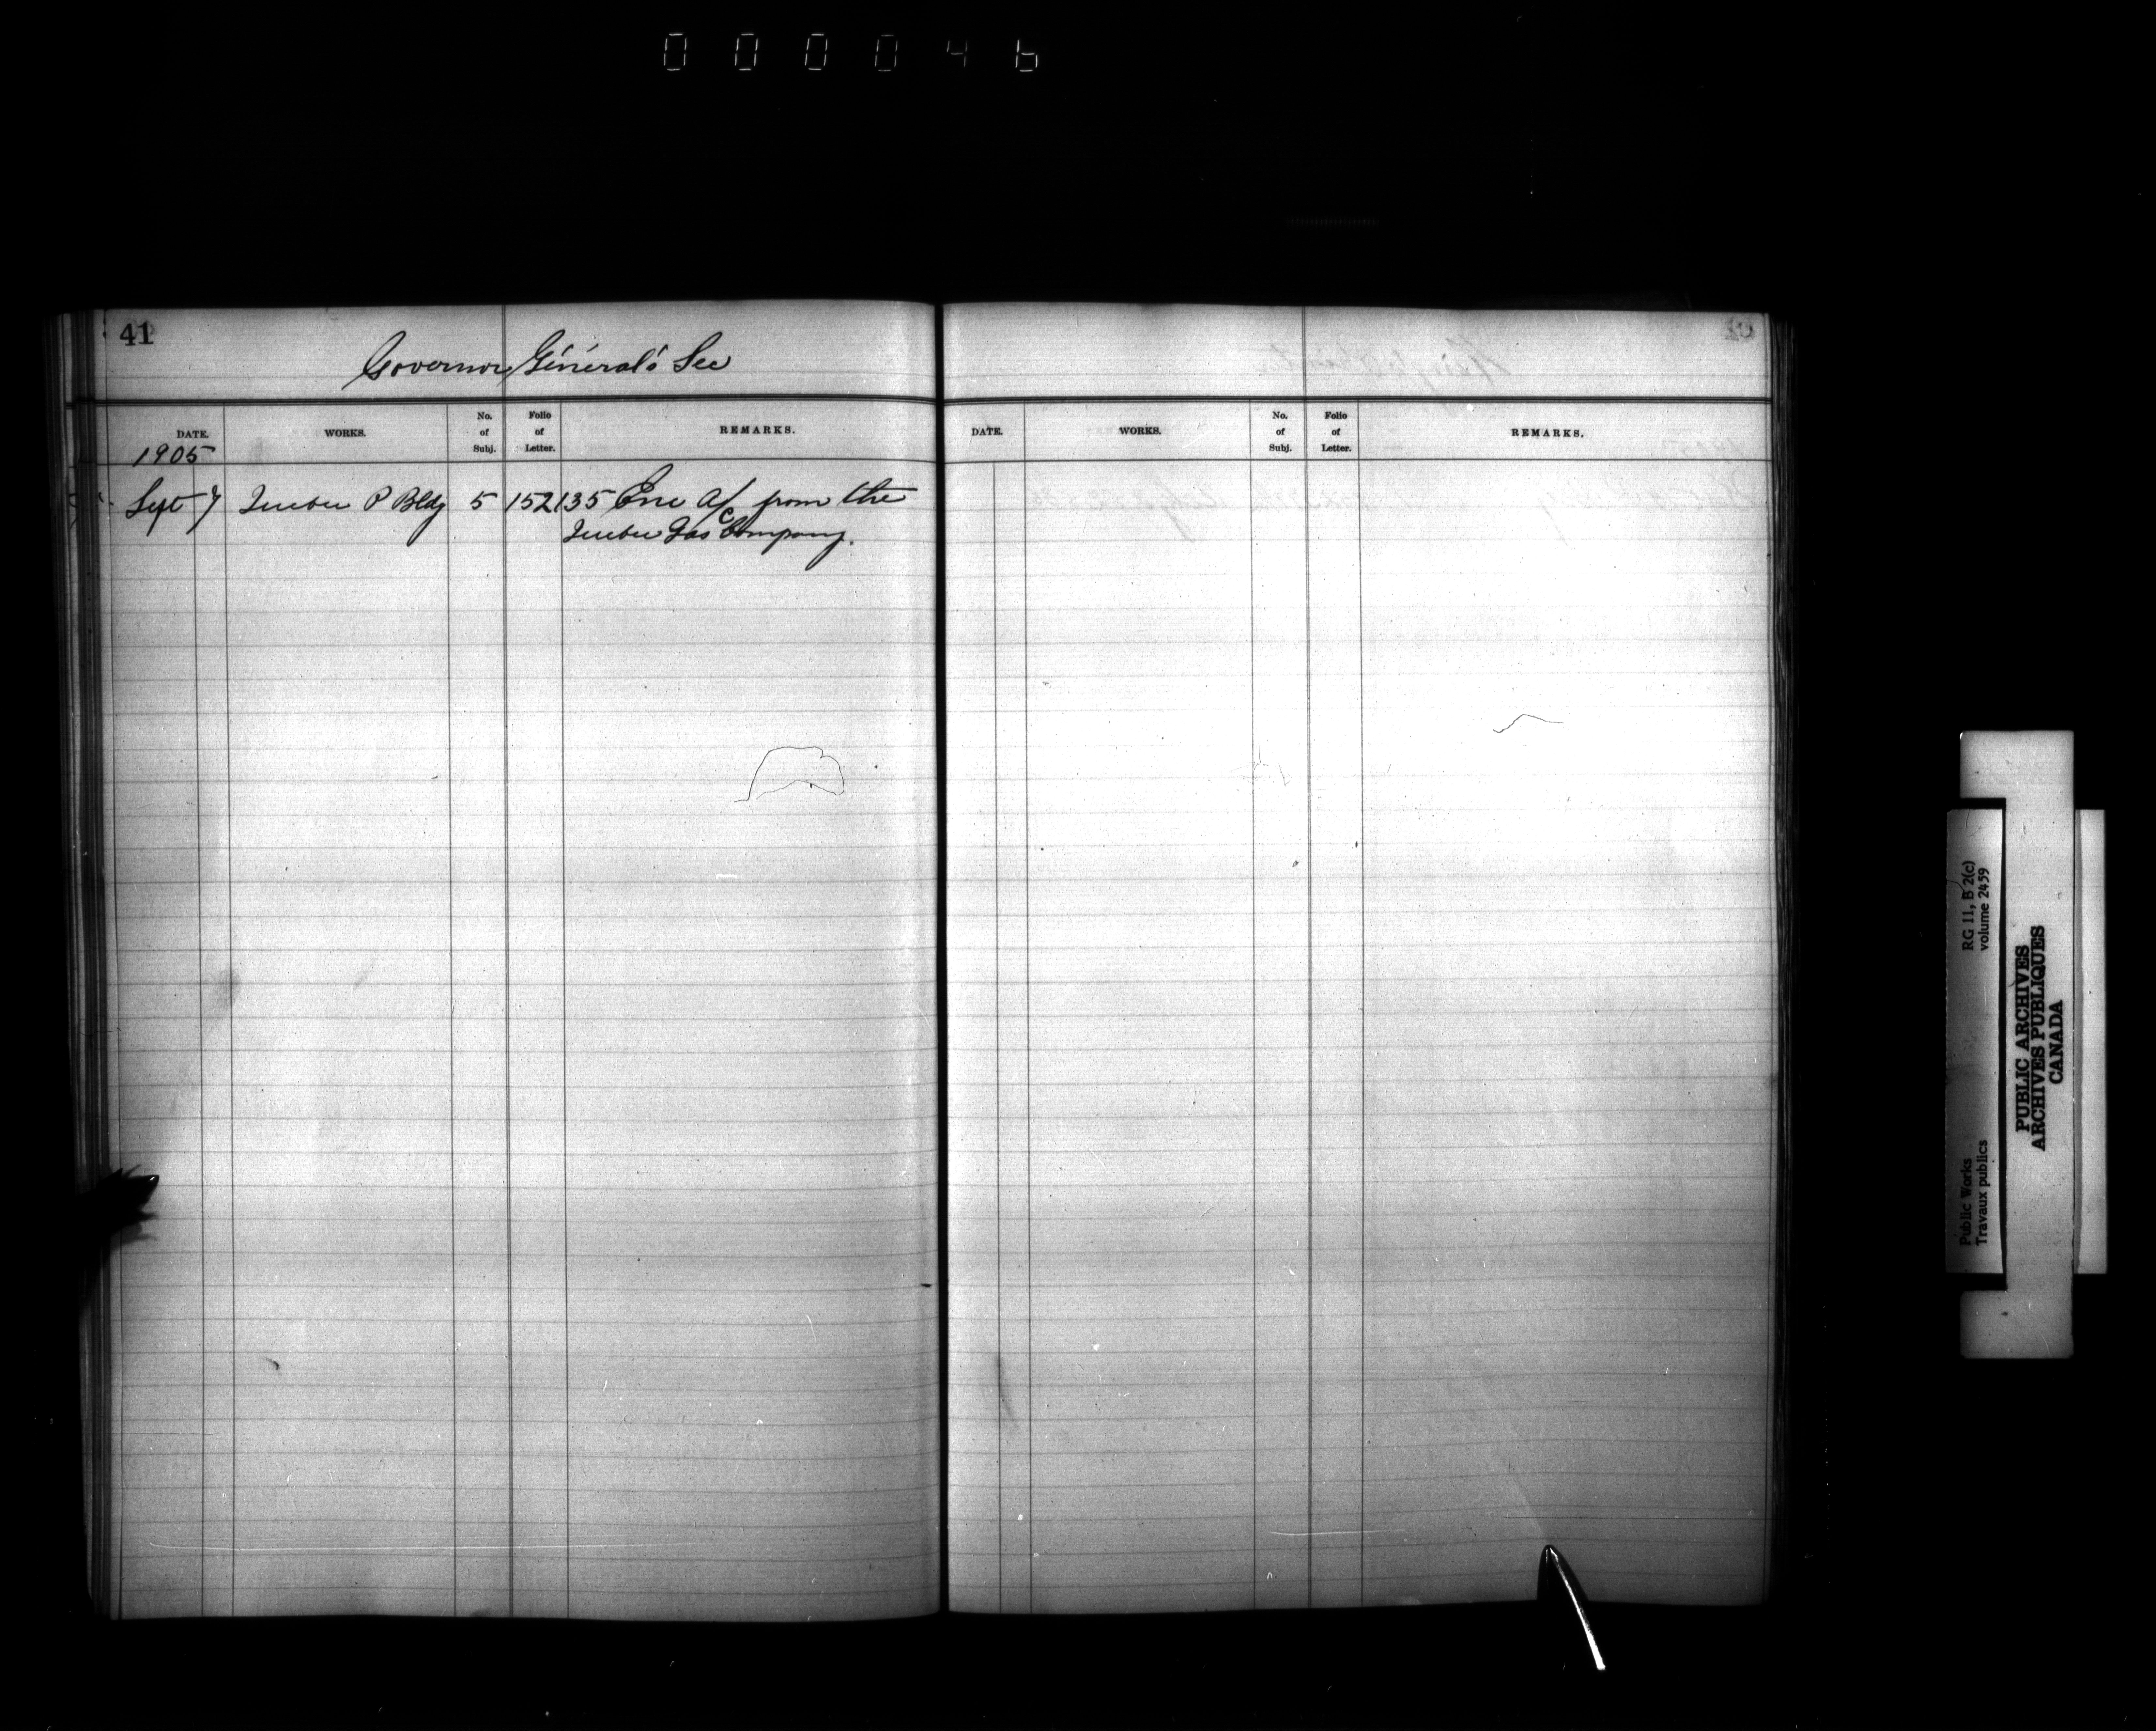 000046
41
Governor General's Sec
DATE. WORKS. No. of Subj. Folio of Letter. REMARKS.
DATE. WORKS. No. of Subj. Folio of Letter. REMARKS.
1905
Sept 7 Quebec P Bldg 5 152135 Enc A/c from the
Quebec Gas Company.
RG 11, B 2(c)
volume 2459
Public Works
Travaux publics
PUBLIC ARCHIVES
ARCHIVES PUBLIQUES
CANADA